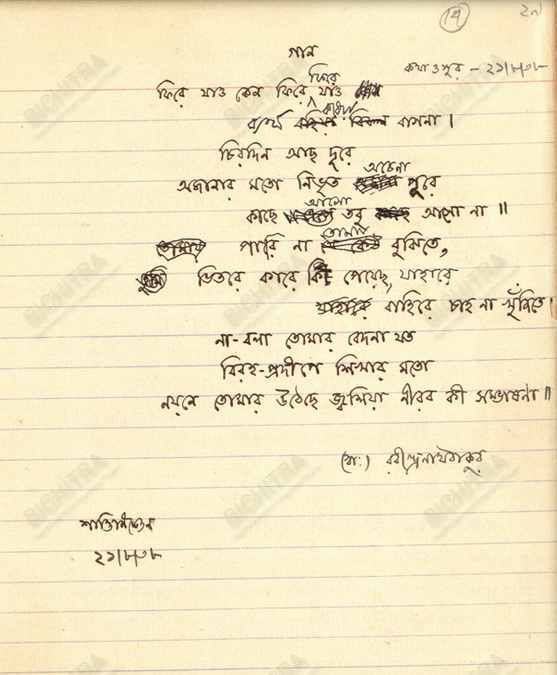 ১৭ ২৯
গান
কথা ও সুর - ২১/৮/৩৮
ফিরে যাও কেন ফিরে ফিরে যাও
ব্যর্থ বহিয়া বাসনা।
চিরদিন আছ দূরে
অজানার মতো নিভৃত অচেনা পুরে
কাছে আসো তবু আসো না॥
পারি না তোমায় বুঝিতে,
ভিতরে কারে কি পেয়েছ, যাহারে
বাহিরে চাহ না খুঁজিতে।
না-বলা তোমার বেদনা যত
বিরহ-প্রদীপে শিখার মতো
নয়নে তোমার উঠেছে জ্বলিয়া নীরব কী সম্ভাষনা॥
(স্বাঃ) রবীন্দ্রনাথ ঠাকুর
শান্তিনিকেতন
২১/৮/৩৮
BICHITRA